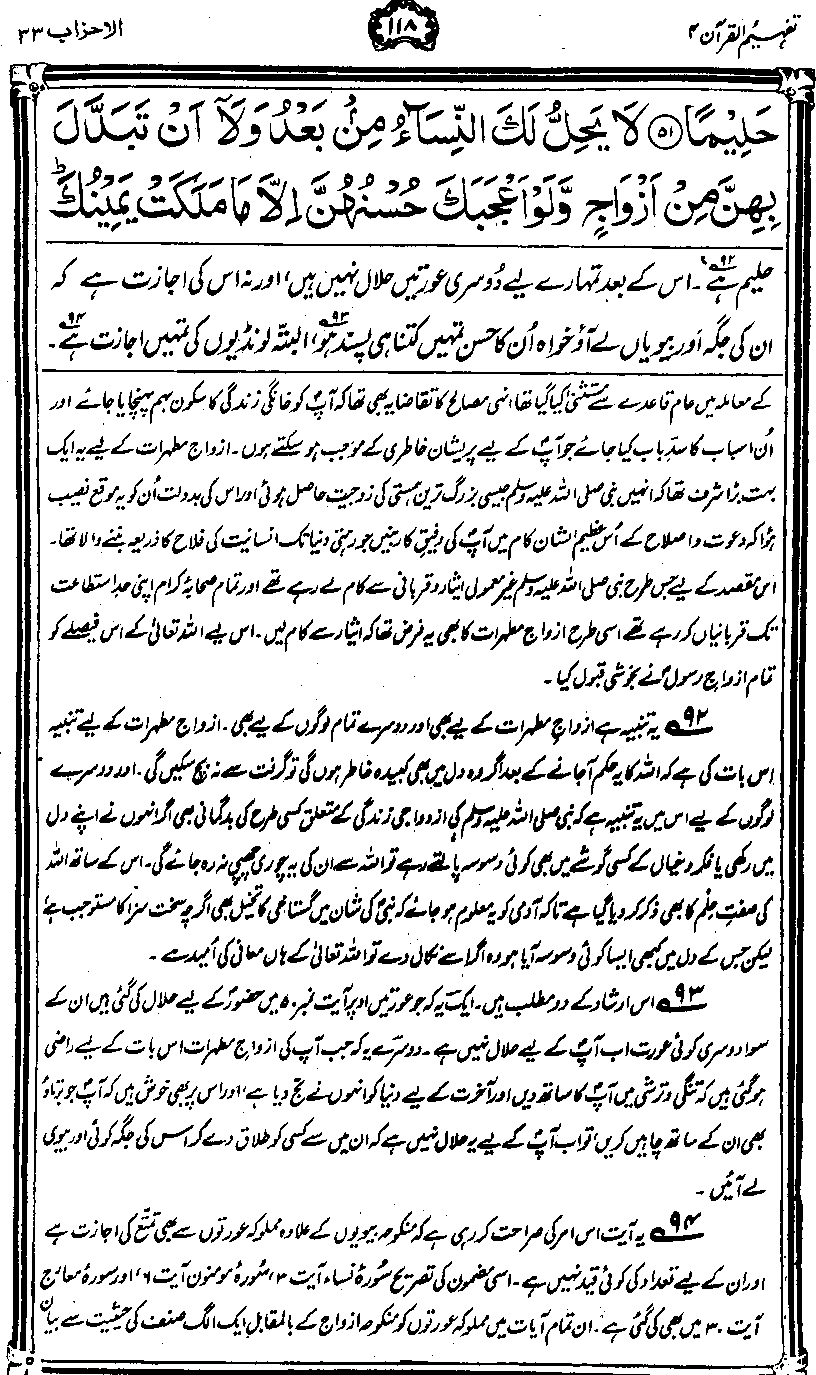 تفہیم القرآن ۴
۱۱۸
الاحزاب ۳۳
حَلِيْمًا ﴿۵۱﴾ لَا يَحِلُّ لَكَ النِّسَآءُ مِنْۢ بَعْدُ وَلَآ اَنْ تَبَدَّلَ
بِهِنَّ مِنْ اَزْوَاجٍ وَّلَوْ اَعْجَبَكَ حُسْنُهُنَّ اِلَّا مَا مَلَكَتْ يَمِيْنُكَ ؕ
حلیم ہے۹۲۔ اس کے بعد تمہارے لیے دُوسری عورتیں حلال نہیں ہیں، اور نہ اس کی اجازت ہے کہ
ان کی جگہ اَور بیویاں لے آؤ خواہ اُن کا حسن تمہیں کتنا ہی پسند ہو۹۳، البتہ لونڈیوں کی تمہیں اجازت ہے۹۴۔
کے معاملہ میں عام قاعدے سے مستثنیٰ کیا گیا تھا، انہی مصالح کا تقاضا یہ بھی تھا کہ آپؐ کو خانگی زندگی کا سکون بہم پہنچایا جائے اور
اُن اسباب کا سدِّ باب کیا جائے جو آپؐ کے لیے پریشان خاطری کے موجب ہو سکتے ہوں۔ ازواج مطہرات کے لیے یہ ایک
بہت بڑا شرف تھا کہ انہیں نبی صلی اللہ علیہ وسلم جیسی بزرگ ترین ہستی کی زوجیت حاصل ہوئی اور اس کی بدولت اُن کو یہ موقع نصیب
ہُوا کہ دعوت و اصلاح کے اُس عظیم الشان کام میں آپؐ کی رفیقِ کار بنیں جو رہتی دنیا تک انسانیت کی فلاح کا ذریعہ بننے والا تھا۔
اس مقصد کے لیے جس طرح نبی صلی اللہ علیہ وسلم غیر معمولی ایثار و قربانی سے کام لے رہے تھے اور تمام صحابۂ کرام اپنی حدِ استطاعت
تک قربانیاں کر رہے تھے اسی طرح ازواج مطہرات کا بھی یہ فرض تھا کہ ایثار سے کام لیں۔ اس لیے اللہ تعالیٰ کے اس فیصلے کو
تمام ازواجِ رسولؐ نے بخوشی قبول کیا۔
۹۲ یہ تنبیہ ہے ازواجِ مطہرات کے لیے بھی اور دوسرے تمام لوگوں کے لیے بھی۔ ازواج مطہرات کے لیے تنبیہ
اِس بات کی ہے کہ اللہ کا یہ حکم آجانے کے بعد اگر وہ دل میں بھی کبیدہ خاطر ہوں گی تو گرفت سے نہ بچ سکیں گی۔ اور دوسرے
لوگوں کے لیے اس میں یہ تنبیہ ہے کہ نبی صلی اللہ علیہ وسلم کی ازدواجی زندگی کے متعلق کسی طرح کی بدگمانی بھی اگر انہوں نے اپنے دل
میں رکھی یا فکر و خیال کے کسی گوشے میں بھی کوئی وسوسہ پالتے رہے تو اللہ سے ان کی یہ چوری چھپی نہ رہ جائے گی۔ اس کے ساتھ اللہ
کی صفتِ حِلم کا بھی ذکر کر دیا گیا ہے تاکہ آدمی کو یہ معلوم ہو جائے کہ نبیؐ کی شان میں گستاخی کا تخیل بھی اگرچہ سخت سزا کا مستوجب ہے
لیکن جس کے دل میں کبھی ایسا کوئی وسوسہ آیا ہو وہ اگر اسے نکال دے تو اللہ تعالیٰ کے ہاں معافی کی اُمید ہے۔
۹۳ اس ارشاد کے دو مطلب ہیں۔ ایک یہ کہ جو عورتیں اوپر آیت نمبر ۵۰ میں حضورؐ کے لیے حلال کی گئی ہیں ان کے
سوا دوسری کوئی عورت اب آپؐ کے لیے حلال نہیں ہے۔ دوسرے یہ کہ جب آپ کی ازواج مطہرات اس بات کے لیے راضی
ہو گئی ہیں کہ تنگی و ترشی میں آپؐ کا ساتھ دیں اور آخرت کے لیے دنیا کو انہوں نے تج دیا ہے، اور اس پر بھی خوش ہیں کہ آپؐ جو برتاؤ
بھی ان کے ساتھ چاہیں کریں، تو اب آپؐ کے لیے یہ حلال نہیں ہے کہ ان میں سے کسی کو طلاق دے کر اس کی جگہ کوئی اور بیوی
لے آئیں۔
۹۴ یہ آیت اس امر کی صراحت کر رہی ہے کہ منکوحہ بیویوں کے علاوہ مملوکہ عورتوں سے بھی تمتّع کی اجازت ہے
اور ان کے لیے تعداد کی کوئی قید نہیں ہے۔ اسی مضمون کی تصریح سُورۂ نساء آیت ۳، سُورۂ مومنون آیت ۶، اور سورۂ معارج
آیت ۳۰ میں بھی کی گئی ہے۔ ان تمام آیات میں مملوکہ عورتوں کو منکوحہ ازواج کے بالمقابل ایک الگ صنف کی حیثیت سے بیان